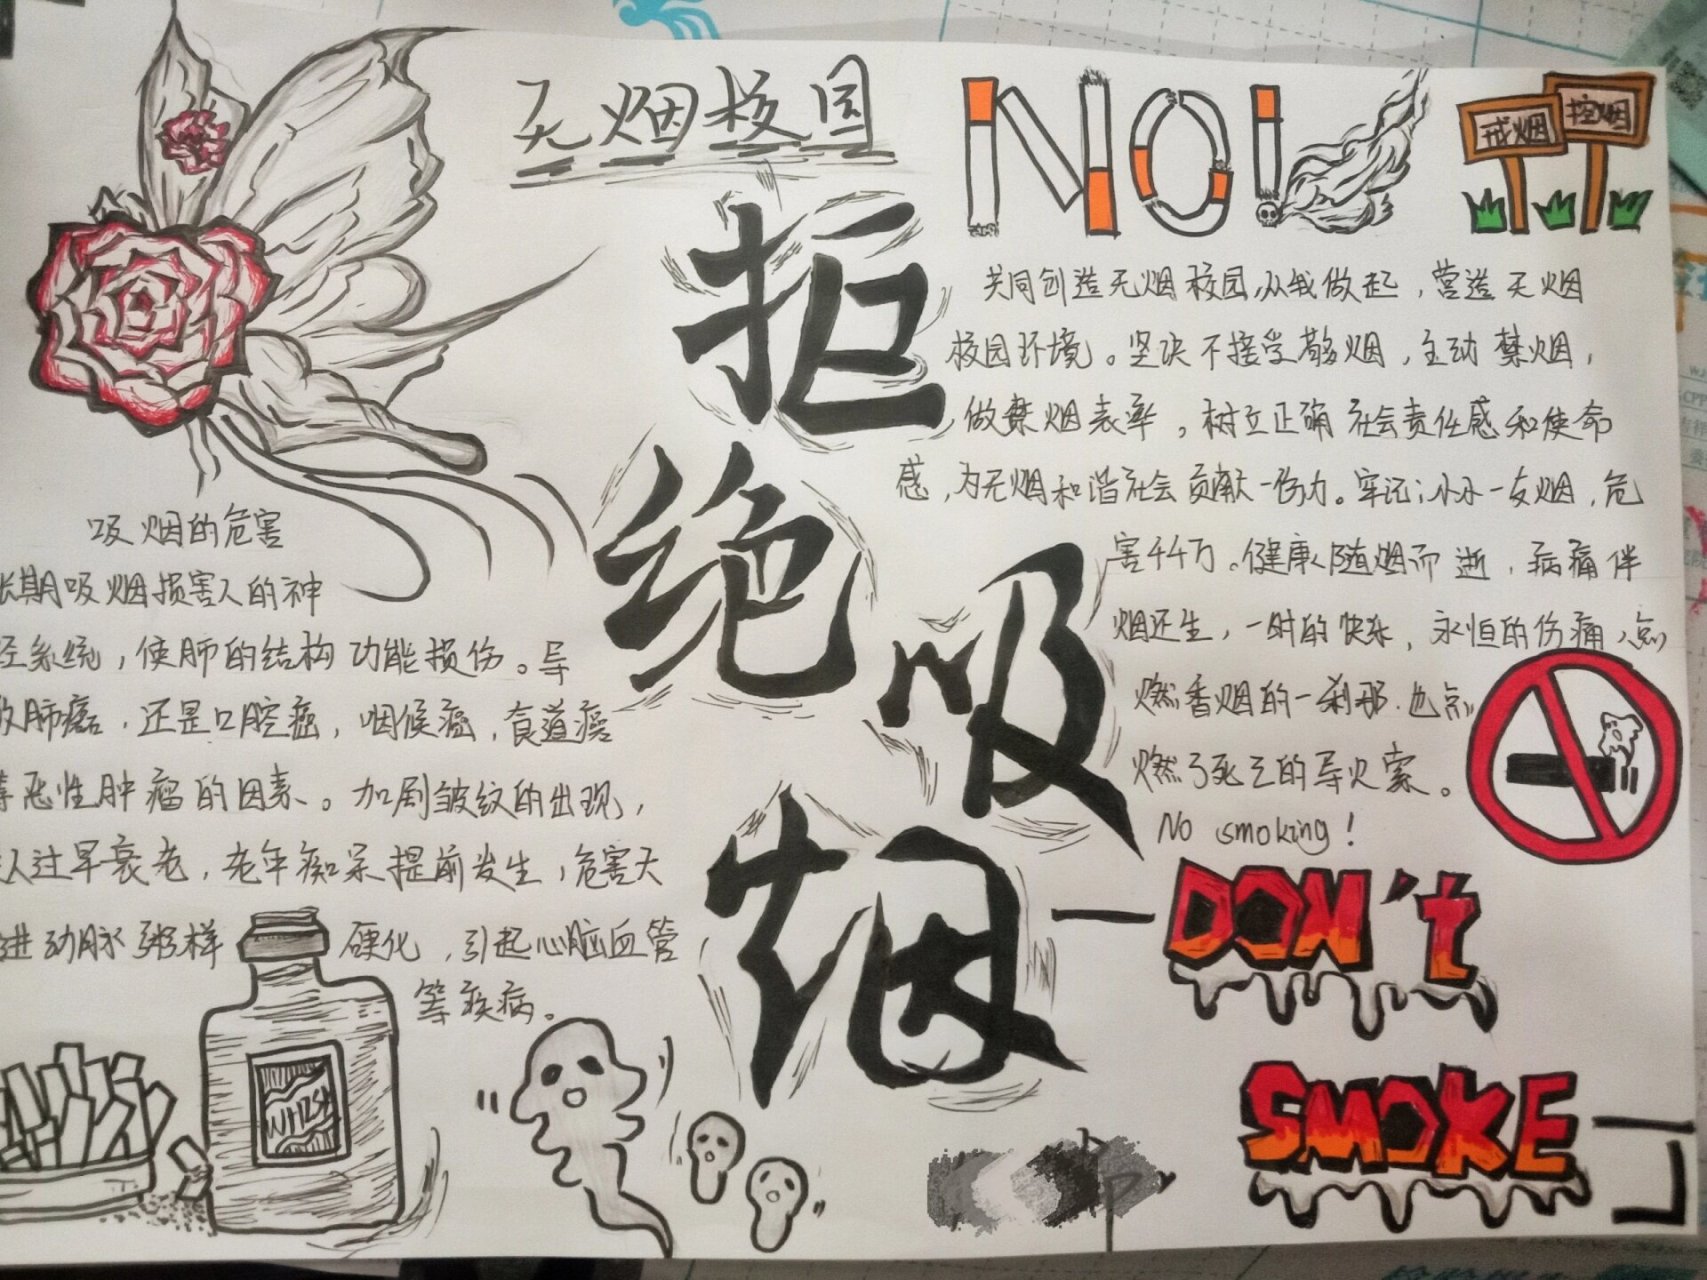 无烟校园
NO!
戒烟
控烟
拒
绝
吸
烟
共同创造无烟校园,从我做起,营造无烟
校园环境。坚决不接受敬烟,主动禁烟,
做禁烟表率,树立正确社会责任感和使命
感,为无烟和谐社会贡献一份力。牢记:小小一支烟,危
害千千万。健康随烟而逝,病痛伴
烟还生,一时的快乐,永恒的伤痛,点
燃香烟的一刹那.也点
燃了死亡的导火索。
No smoking!
吸烟的危害
长期吸烟损害人的神
经系统,使肺的结构功能损伤。导
致肺癌,还是口腔癌,咽候癌,食道癌
等恶性肿瘤的因素。加剧皱纹的出现,
人过早衰老,老年痴呆提前发生,危害大
进动脉粥样硬化,引起心脑血管
等疾病。
DON't
SMOKE